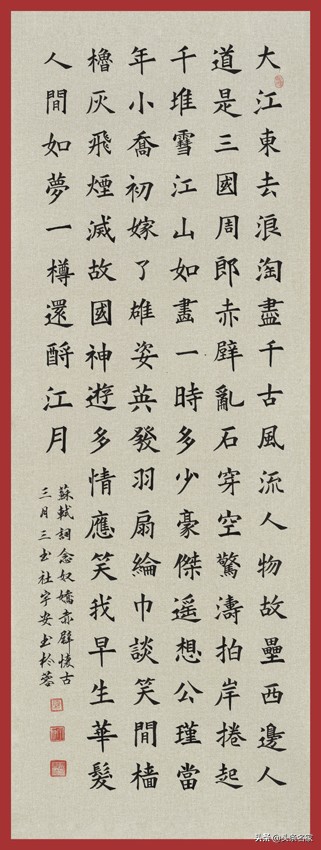 大江東去浪淘盡千古風流人物故壘西邊人
道是三國周郎赤壁亂石穿空驚濤拍岸捲起
千堆雪江山如畫一時多少豪傑遥想公瑾當
年小喬初嫁了雄姿英發羽扇綸巾談笑間檣
櫓灰飛煙滅故國神遊多情應笑我早生華髮
人間如夢一樽還酹江月
蘇軾詞念奴嬌赤壁懷古
三月三 宇安书於蓉